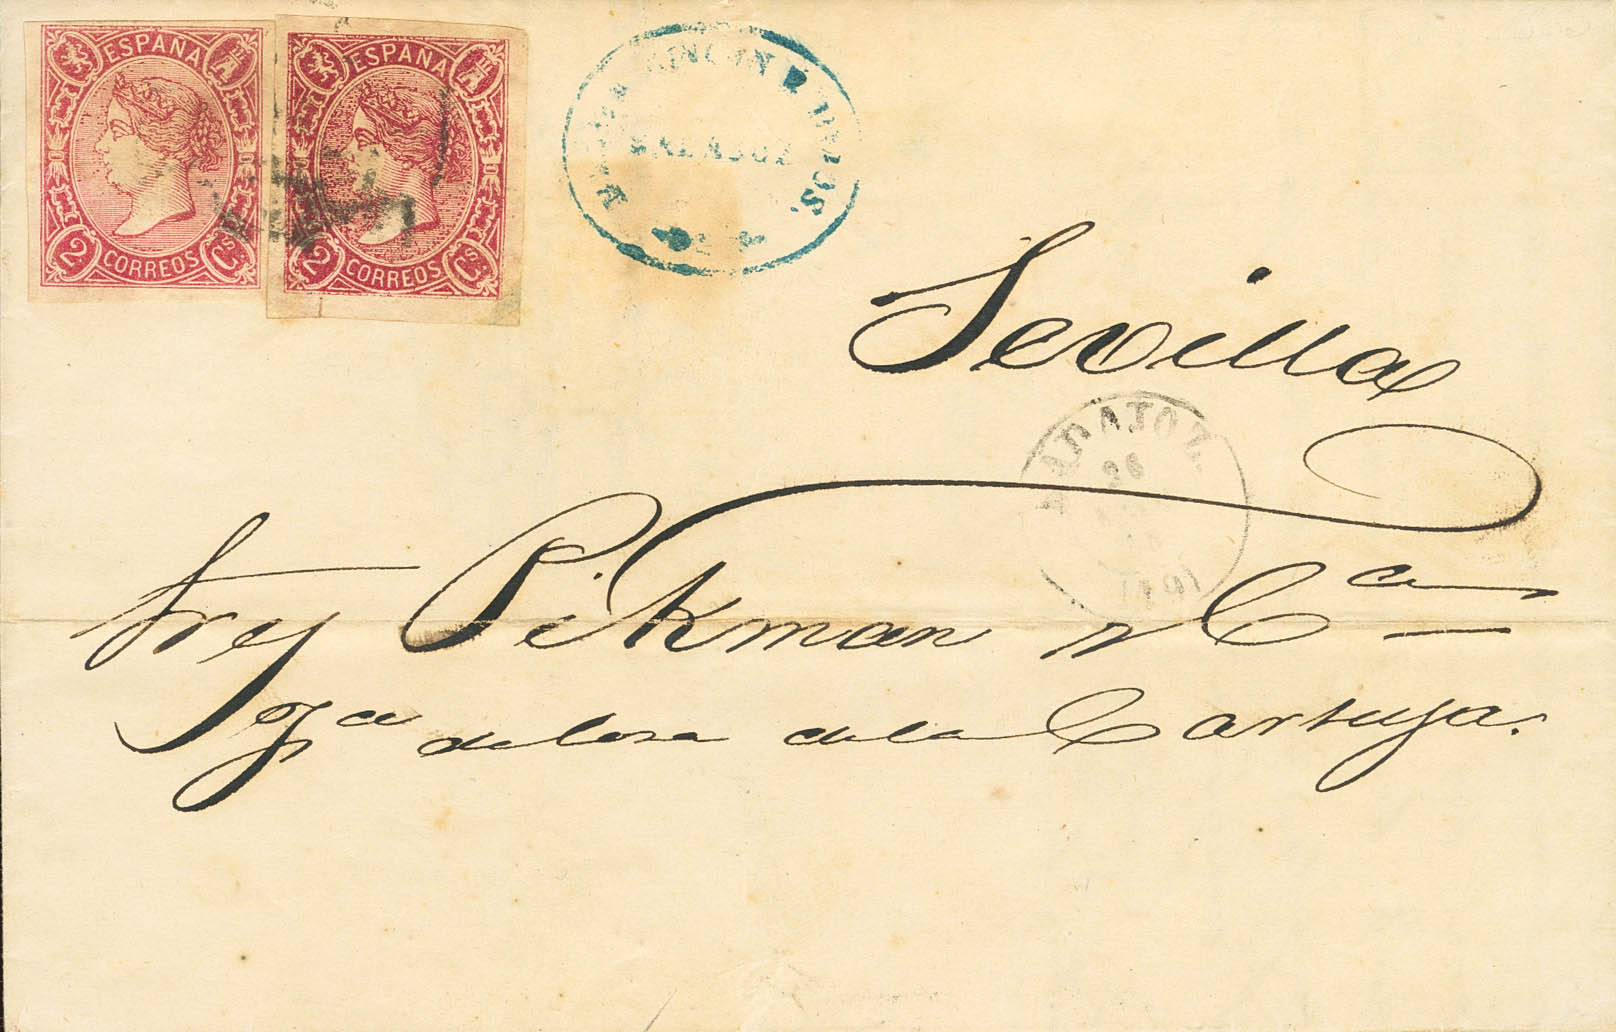 ESPAÑA
2 CORREOS Cs
ESPAÑA
2 CORREOS Cs
BADAJOZ
Sevilla
BADAJOZ
26
Sres Pikman y Ca
Fca de losa de la Cartuja.